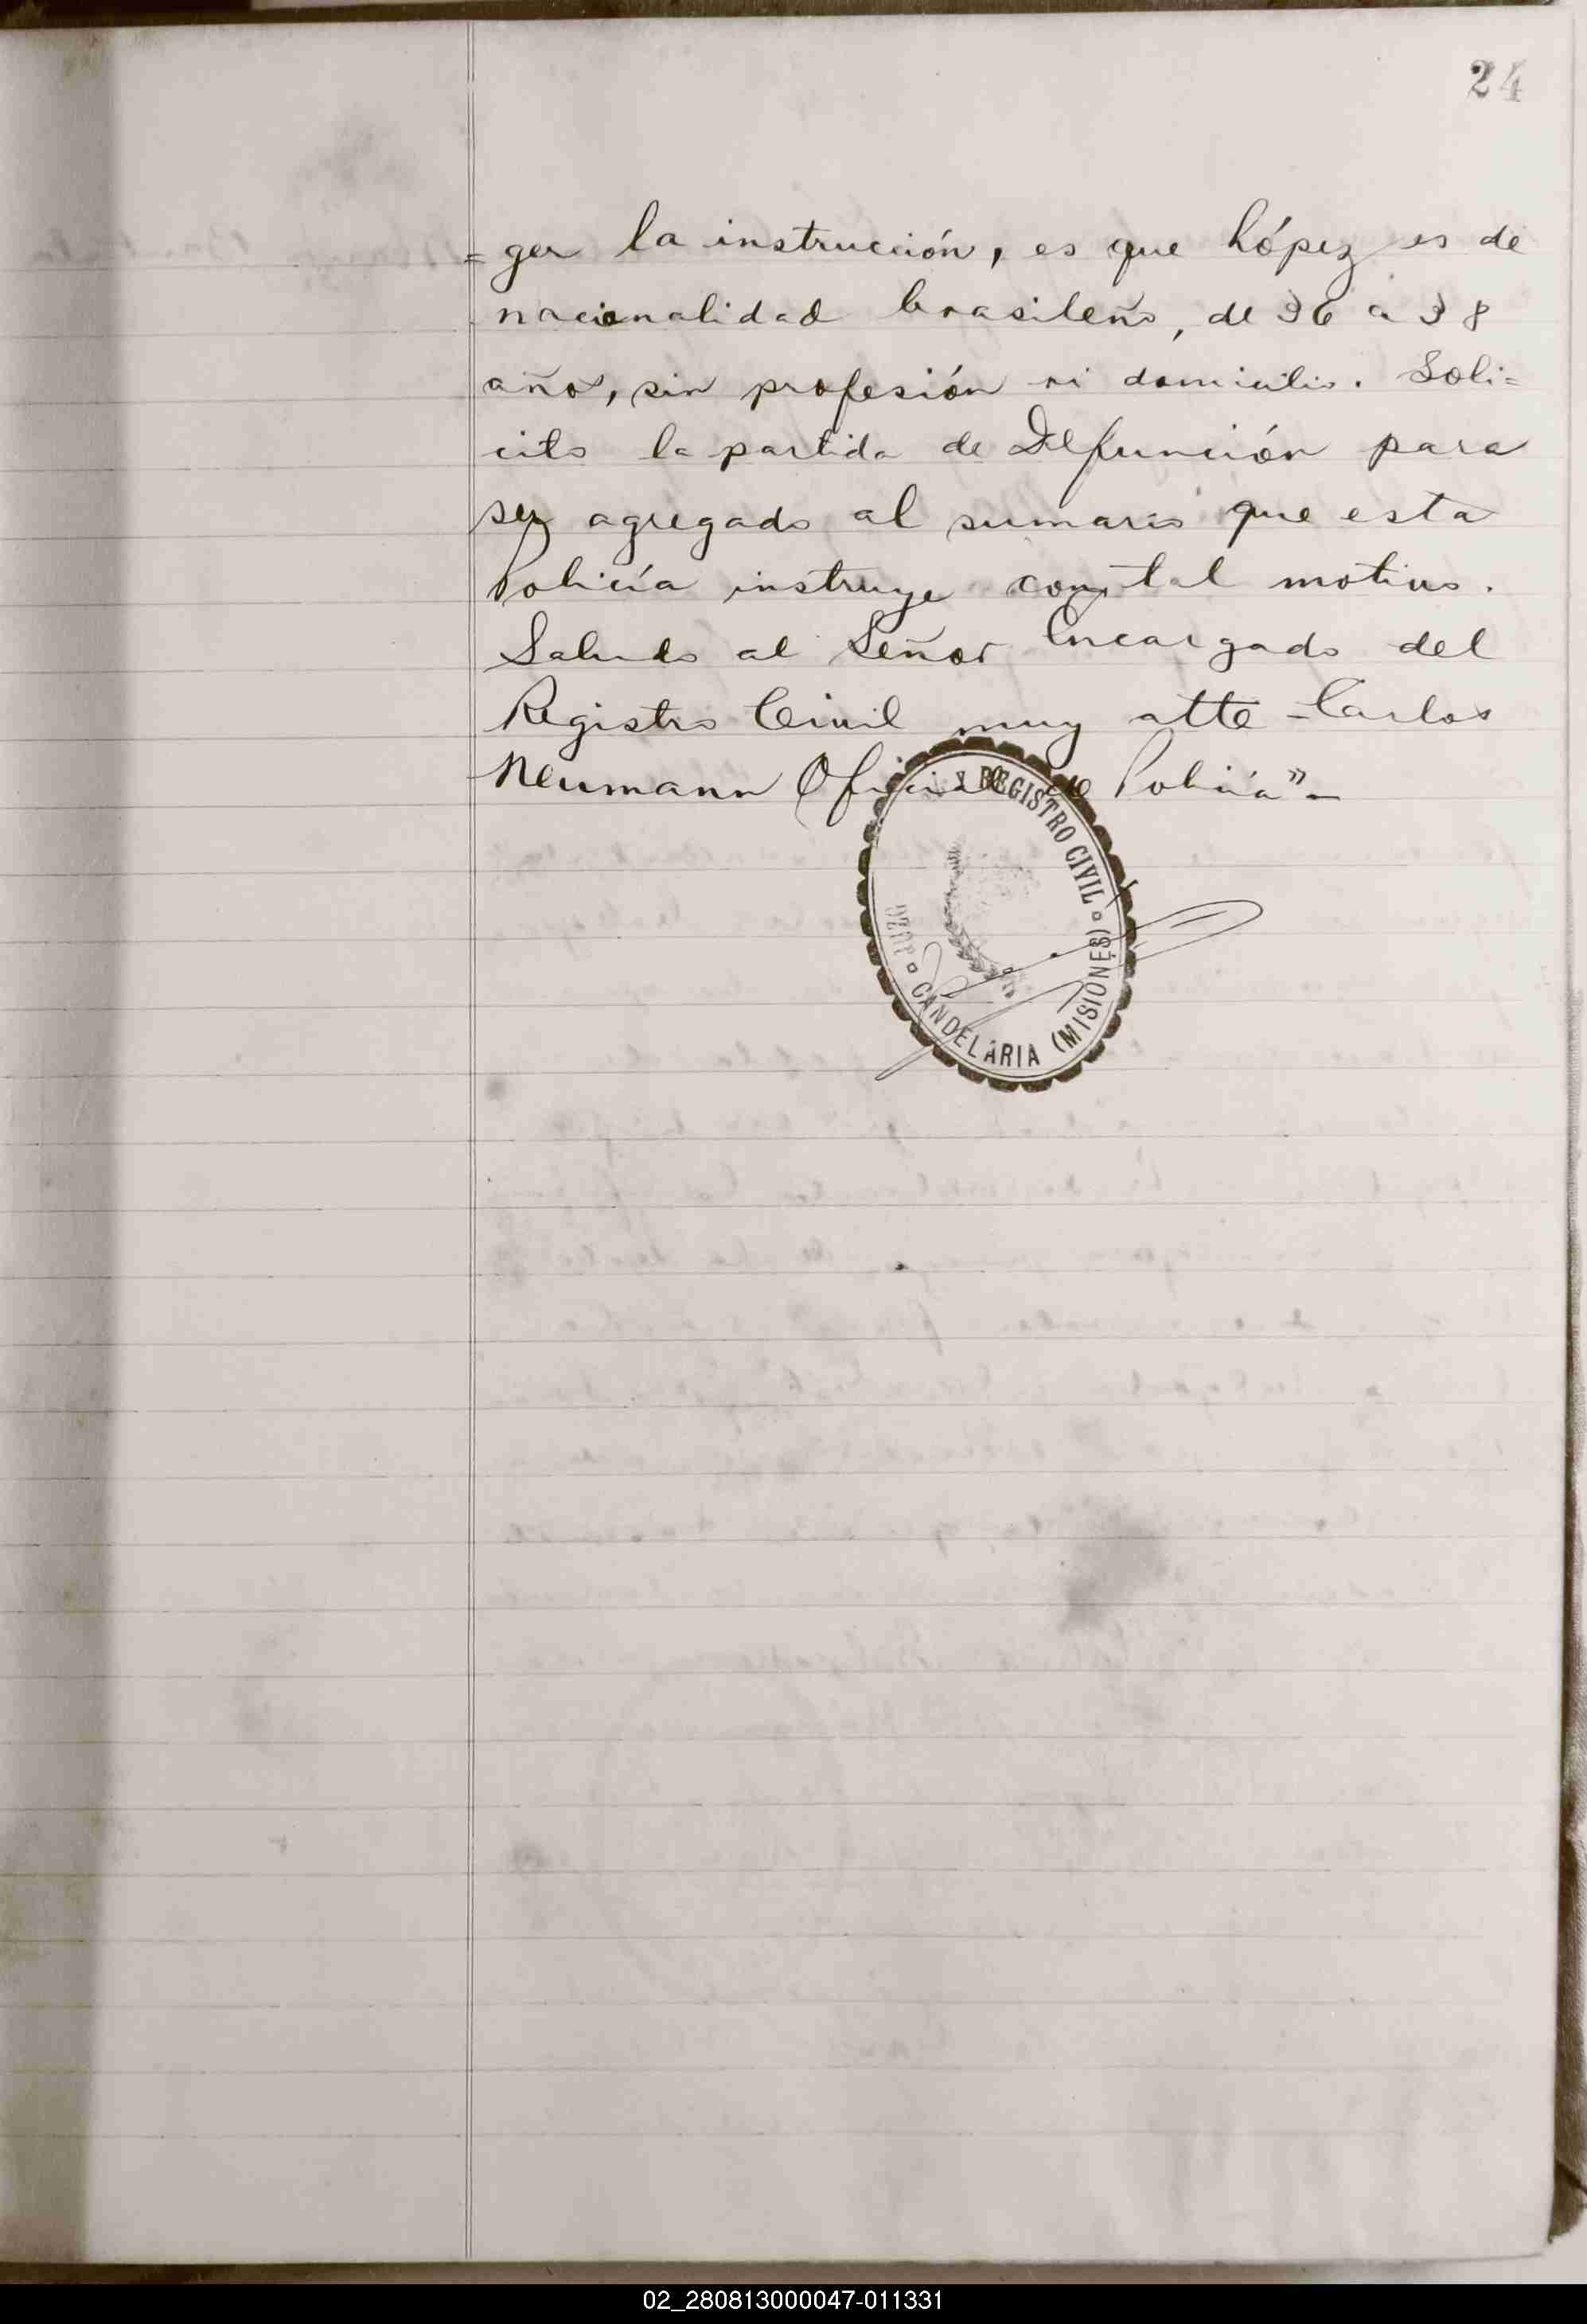 24
=ger la instrucción, es que López es de
nacionalidad brasileño, de 36 a 38
años, sin profesión ni domicilio. Soli=
cito la partida de Defunción para
ser agregado al sumario que esta
Policía instruye con tal motivo.
Saludo al Señor Encargado del
Registro Civil muy atte - Carlos
Neumann Oficial de Policía" -
REGISTRO CIVIL
CANDELARIA (MISIONES)
02_280813000047-011331